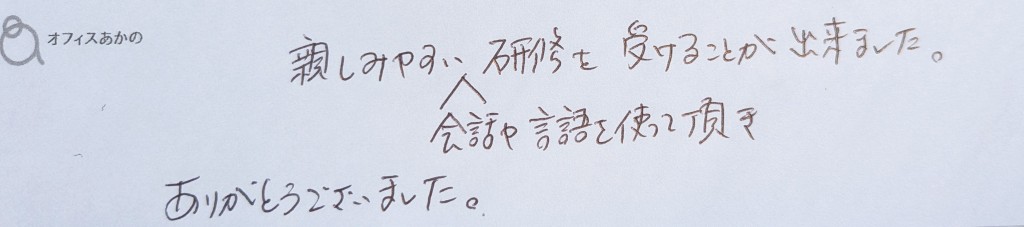 オフィスあかの
親しみやすい研修を受けることが出来ました。
会話や言語を使って頂き
ありがとうございました。